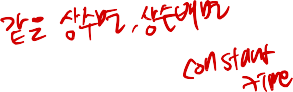 같은 상수면, 상수배면
constant
time